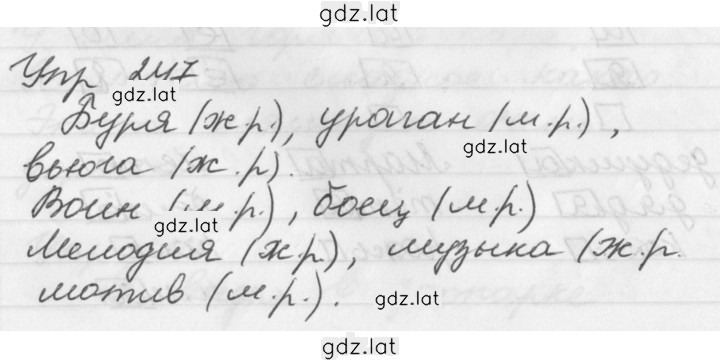 gdz.lat
Упр 247
gdz.lat
Буря (ж.р.), ураган (м.р.),
gdz.lat
вьюга (ж.р).
Воин (м.р.), боец (м.р.)
gdz.lat
Мелодия (ж.р), музыка (ж.р.
мотив (м.р.).
gdz.lat
gdz.lat